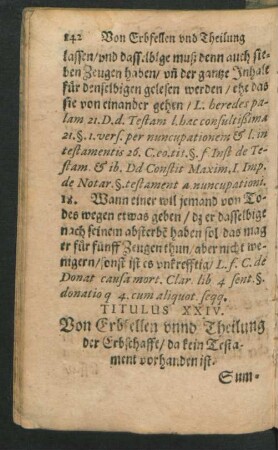 242 Von Erbfellen vnd Theilung
lassen/vnd dasselbige muß denn auch sie-
ben Zeugen haben/ vñ der gantze Inhalt
für denselbigen gelesen werden / ehe das
sie von einander gehen / L. heredes pa-
lam 21. D. d. Testam l. hac consultißima
21. §. 1. vers. per nuncupationem & l. in
testamentis 26. C. eo. tit. §. f Inst de Te-
stam. & ib. Dd Constit Maxim. I. Imp.
de Notar. §. testament a nuncupationi.
18. Wann einer wil jemand von To-
des wegen etwas geben / dz er dasselbige
nach seinem absterbē haben sol das mag
er für fünff Zeugen thun/ aber nicht we-
nigern/sonst ist es vnkrefftig/ L. f. C. de
Donat causa mort. Clar. lib 4 sent. §.
donatio q 4. cum aliquot seqq.
TITULUS XXIV.
Von Erbfellen vnnd Theilung
der Erbschafft/ da kein Testa-
ment vorhanden ist.
Sum-